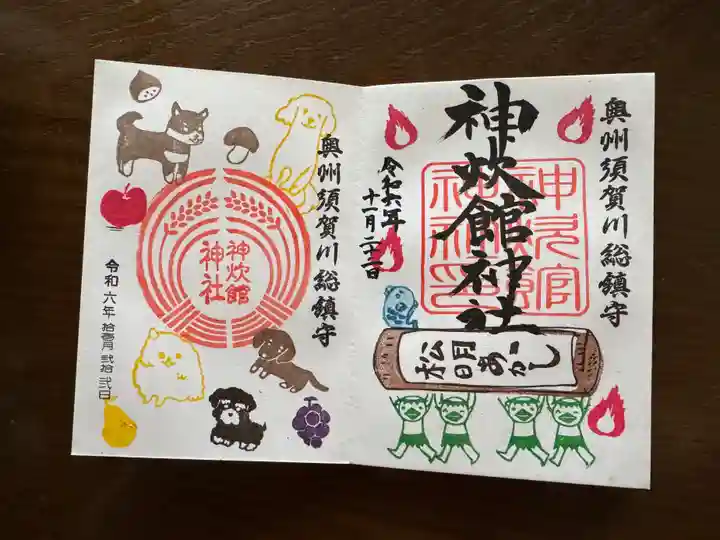 奥州須賀川総鎮守
神炊館神社
令和六年
十一月二十二日
松明あかし
奥州須賀川総鎮守
神炊館
神社
令和六年拾壱月弐拾弐日